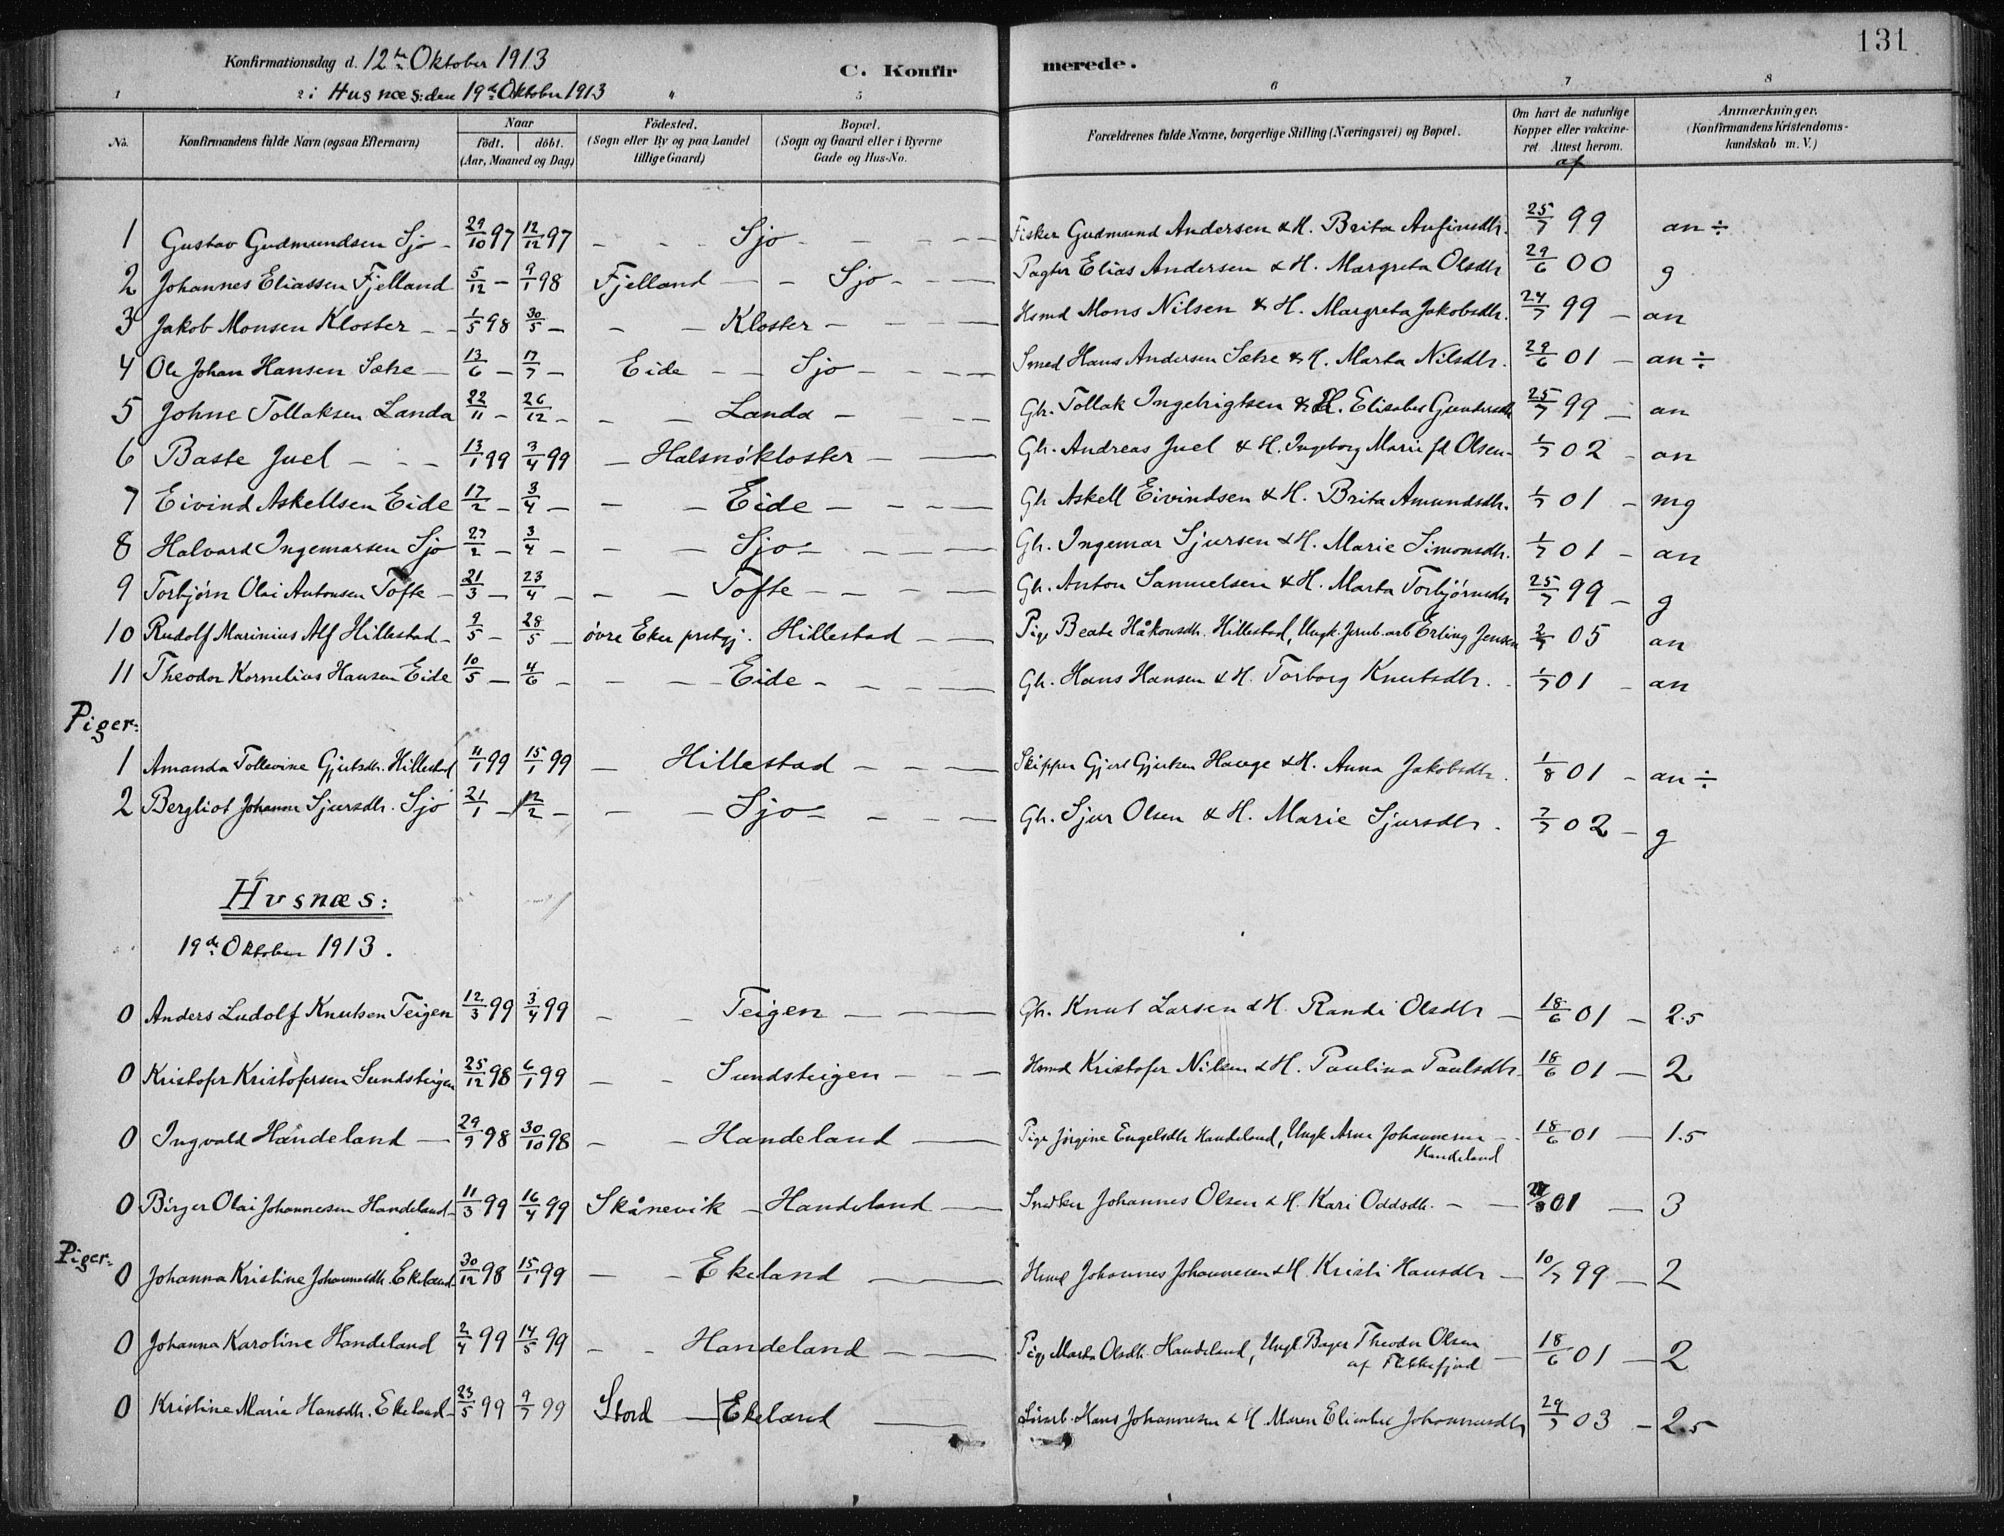 131
Konfirmationsdag d. 12te Oktober 1913
i Husnæs: den 19de Oktober 1913
C. Konfirmerede.
1 2 4 5 6 7 8
No. Konfirmandens fulde Navn (ogsaa Efternavn) Naar födt. döbt. (Aar, Maaned og Dag) Födested. (Sogn eller By og paa Landet tillige Gaard) Bopæl. (Sogn og Gaard eller i Byerne Gade og Hus-No. Forældrenes fulde Navne, borgerlige Stilling (Næringsvei) og Bopæl. Om havt de naturlige Kopper eller vakcineret. Attest herom. af Anmærkninger. (Konfirmandens Kristendomskundskab m. V.)
1 Gustav Gudmundsen Sjo - 29/10 97 12/12 97 - - - Sjo - - - - Fisker Gudmund Andersen & H. Brita Anfinsdtr. 25/7 99 an ÷
2 Johannes Eliassen Fjelland 5/12 - 9/1 98 Fjelland - - Sjo - - - Pagter Elias Andersen & H. Margreta Olsdtr 29/6 00 g
3 Jakob Monsen Kloster - - 1/5 98 30/5 - - - Kloster - - - - Hsmd Mons Nilsen & H. Margreta Jakobsdtr. 24/7 99 - an
4 Ole Johan Hansen Sætre - 13/6 - 17/7 - Eide - - Sjo - - - - Smed Hans Andersen Sætre & H. Marta Nilsdtr. 29/6 01 - an ÷
5 Johne Tollaksen Landa 22/11 - 26/12 - - - Landa - - - - Gbr. Tollak Ingebrigtsen & H. Elisabet Gundersdtr 25/7 99 - an
6 Baste Juel - - - 13/1 99 3/4 99 - Halsnökloster - - Gbr. Andreas Juel & H. Ingeborg Marie fd Olsen - 1/7 02 - an
7 Eivind Askellsen Eide 17/2 - 3/4 - - - Eide - - - - Gbr Askell Eivindsen & H. Brita Amundsdtr. 1/7 01 - mg
8 Halvard Ingemarsen Sjo 27/2 - 3/4 - - - Sjo - - - - Gbr. Ingemar Sjursen & H. Marie Simonsdtr. 1/7 01 - an
9 Torbjörn Olai Antonsen Tofte - 21/3 - 23/4 - - - Tofte - - - - Gbr. Anton Samuelsen & H. Marta Torbjörnsdtr 25/7 99 - g
10 Rudolf Marinius Alf Hillestad - 9/5 - 28/5 - övre Eker prstgj. Hillestad - - - Pige Beate Håkonsdtr. Hillestad, Ungk. Jernb.arb Erling Jensen 2/7 05 an
11 Theodor Kornelius Hansen Eide 10/5 - 4/6 - - - Eide - - - - Gbr. Hans Hansen & H. Torborg Knutsdtr. - 1/7 01 - an
Piger:
1 Amanda Tollevine Gjertsdtr. Hillestad 11/1 99 15/1 99 - Hillestad - - - Skipper Gjert Gjertsen Hauge & H. Anna Jakobsdtr. 1/8 01 - an ÷
2 Bergliot Johanne Sjursdtr. Sjo 21/1 - 12/2 - - - Sjo - - - - Gbr. Sjur Olsen & H. Marie Sjursdtr. 2/7 02 - g
Husnæs:
19de Oktober 1913.
0 Anders Ludolf Knutsen Teigen 12/3 99 3/4 99 - - Teigen - - - Gbr. Knut Larsen & H. Randi Olsdtr - 18/6 01 - 2.5
0 Kristofer Kristofersen Sundsteigen 25/12 98 6/1 99 - - Sundsteigen - - - Hsmd Kristofer Nilsen & H. Paulina Paulsdtr - 18/6 01 - 2
0 Ingvald Handeland - 29/9 98 30/10 98 - - Handeland - - Pige Jörgine Engelsdtr Handeland, Ungk Arne Johannesen - 18/6 01 - 1.5
Handeland
0 Birger Olai Johannesen Handeland - 11/3 99 16/4 99 Skånevik - Handeland - - Snedker Johannes Olsen & H. Kari Oddsdtr. - - 01 - 3
Piger:
0 Johanna Kristine Johannesdtr. Ekeland 30/12 98 15/1 99 - - Ekeland - - Hsmd Johannes Johannesen & H. Kristi Hansdtr - 10/7 99 - 2
0 Johanna Karoline Handeland 2/4 99 14/5 99 - - Handeland - - Pige Marta Olsdtr. Handeland, Ungk Bager Theodor Olsen - 18/6 01 - 2
af Flekkefjord
0 Kristine Marie Hansdtr. Ekeland - 23/5 99 9/7 99 Stord - Ekeland - Hans Johannesen & H. Maren Elisabet Johannesdtr 29/7 03 - 2.5